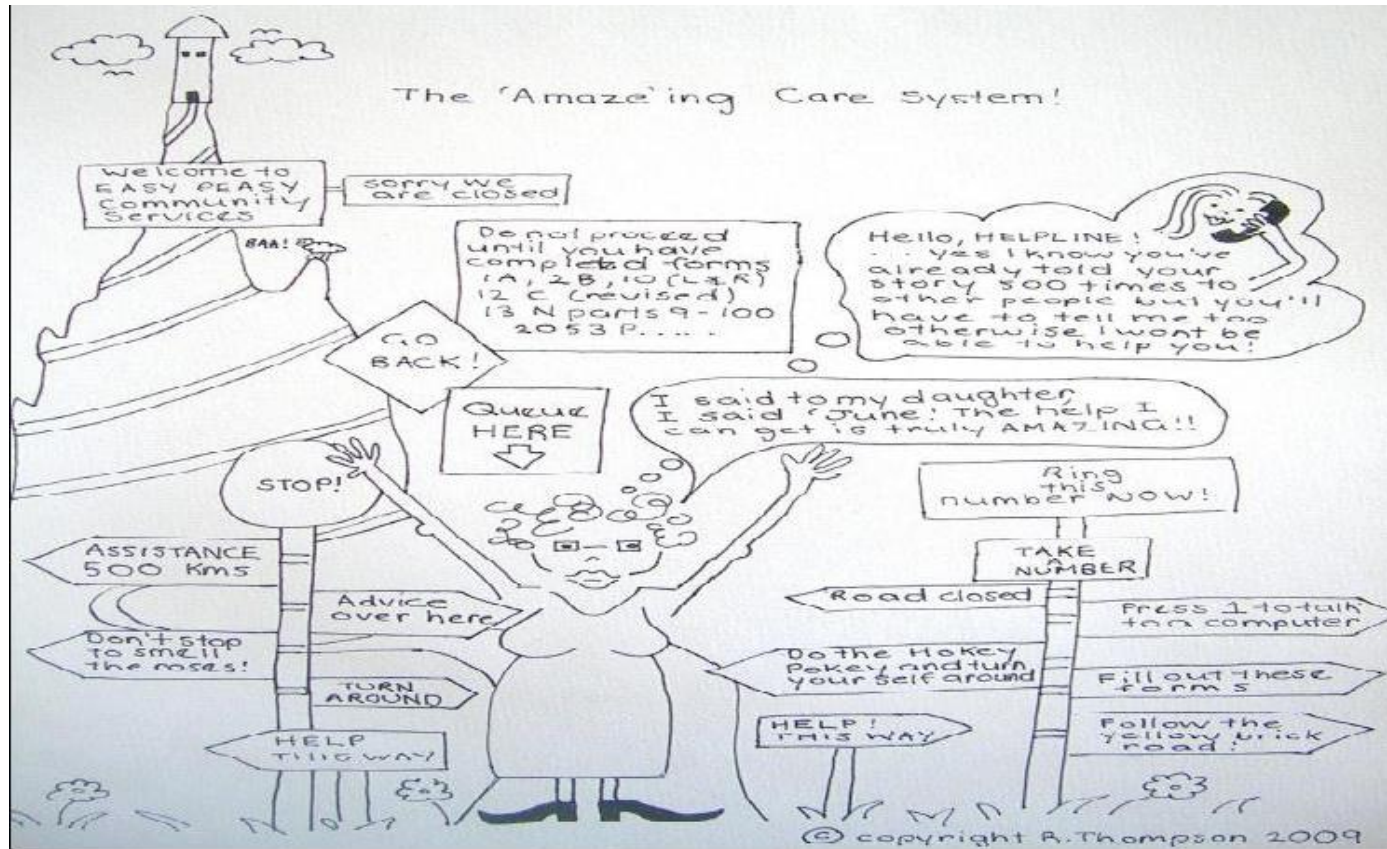 The 'Amaze'ing Care System!
Welcome to
EASY PEASY
Community
Services
sorry we
are closed
BAA!
Do not proceed
until you have
completed forms
1A, 2B, 10 (L&R)
12 C (revised)
13 N parts 9-100
2053 P.....
Hello, HELPLINE!
... yes I know you've
already told your
story 500 times to
other people but you'll
have to tell me too
otherwise I wont be
able to help you!
GO
BACK!
Queue
HERE
I said to my daughter,
I said 'June! The help I
can get is truly AMAZING!!
STOP!
Ring
this
number NOW!
ASSISTANCE
500 Kms
Advice
over here
Don't stop
to smell
the roses!
TURN
AROUND
HELP
THIS WAY
TAKE
A
NUMBER
Road closed
Press 1 to talk
to a computer
Do the Hokey
Pokey and turn
your self around
Fill out these
forms
HELP!
THIS WAY
Follow the
yellow brick
road!
© copyright R. Thompson 2009